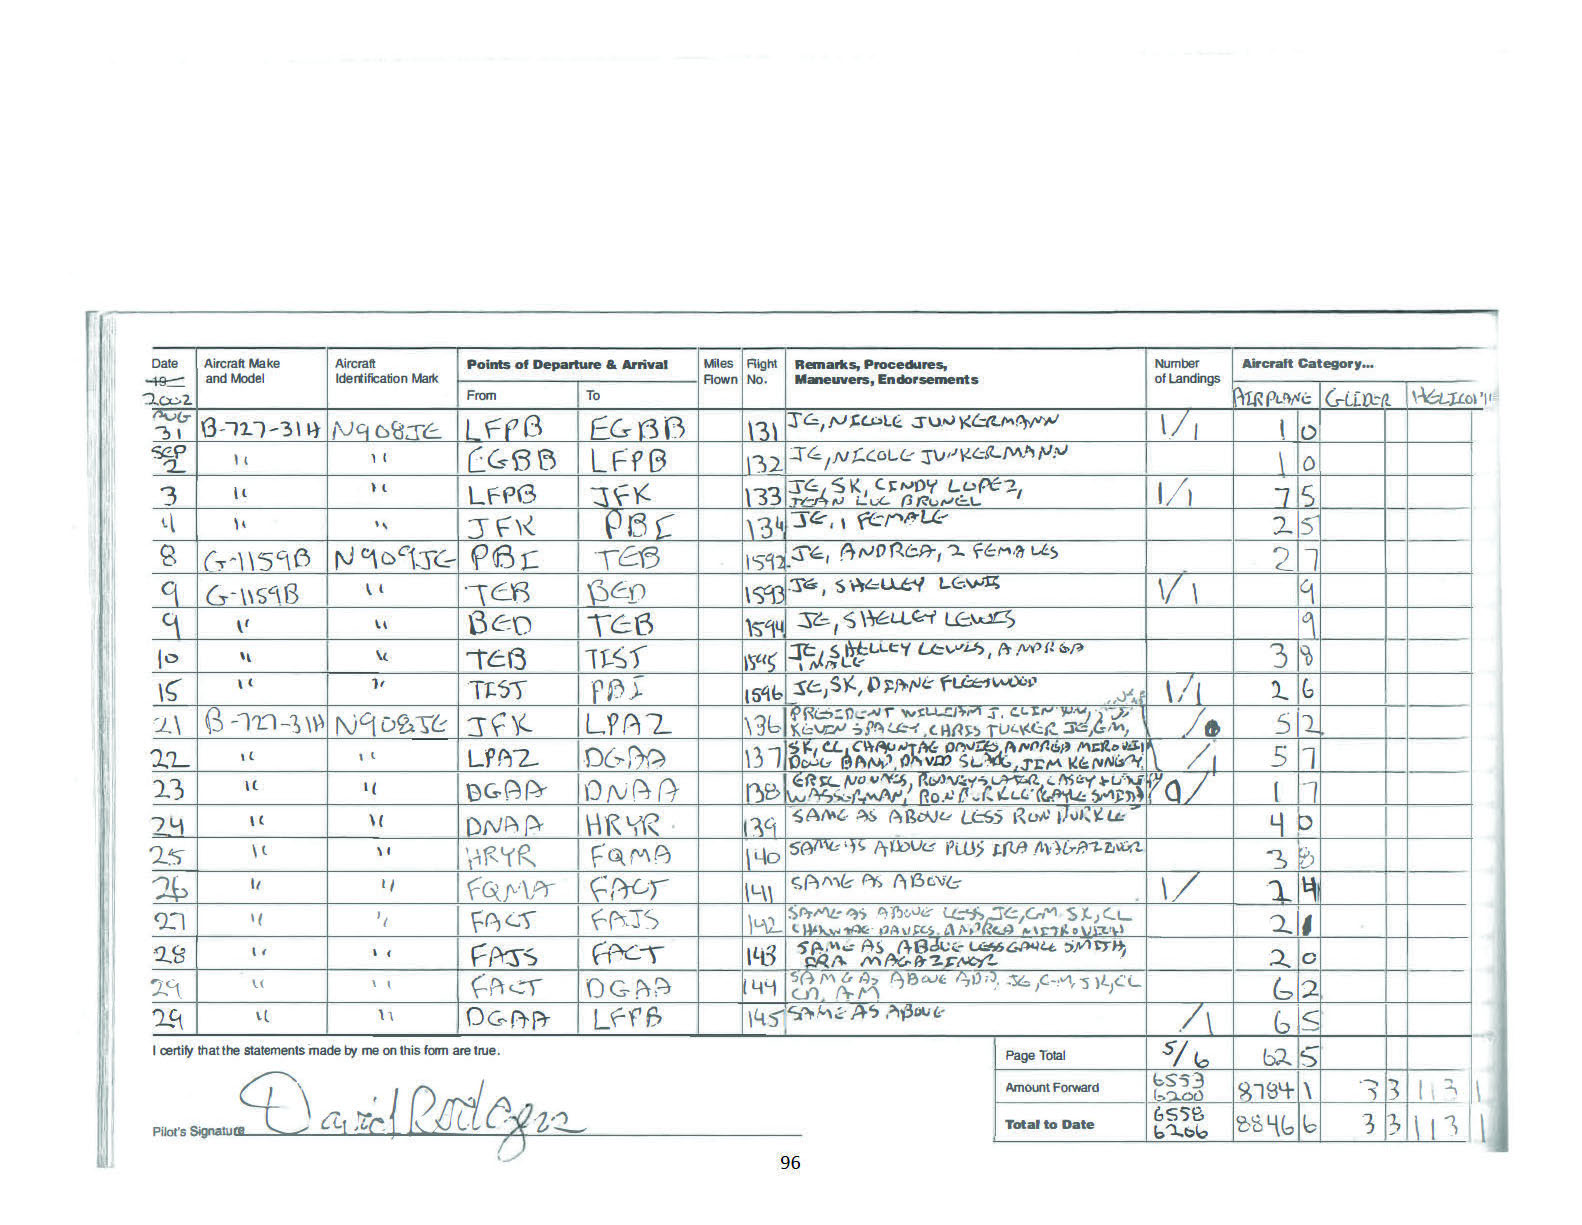 Date Aircraft Make Aircraft Points of Departure & Arrival Miles Flight Remarks, Procedures, Number Aircraft Category...
19 and Model Identification Mark Flown No. Maneuvers, Endorsements of Landings
2002 From To AIRPLANE GLIDER
AUG 31 B-727-31H N908JE LFPB EGBB 131 JE, NICOLE JUNKERMANN 1/1 1 0
SEP 2 " " EGBB LFPB 132 JE, NICOLE JUNKERMANN 1 0
3 " " LFPB JFK 133 JE, SK, CINDY LOPEZ, 1/1 7 5
JEAN LUC BRUNEL
4 " " JFK PBI 134 JE, 1 FEMALE 2 5
8 G-1159B N909JE PBI TEB 1592 JE, ANDREA, 2 FEMALES 2 7
9 G-1159B " TEB BED 1593 JE, SHELLEY LEWIS 1/1 9
9 " " BED TEB 1594 JE, SHELLEY LEWIS 9
10 " " TEB TIST 1595 JE, SHELLEY LEWIS, ANDREA 3 8
1 MALE
15 " " TIST PBI 1596 JE, SK, DIANE FLEETWOOD 1/1 2 6
21 B-727-31H N908JE JFK LPAZ 136 PRESIDENT WILLIAM J. CLINTON, 5 2
KEVIN SPACEY, CHRIS TUCKER JE, GM,
22 " " LPAZ DGAA 137 SK, CL, CHAUNTAE DAVIES, ANDREA /1 5 7
DOUG BAND, DAVID JIM KENNEZ,
23 " " DGAA DNAA 138 ERIC RODNEY SLATER, CASEY 0/ 1 7
WASSERMAN, RON BURKLE GAYLE SMITH
24 " " DNAA HRYR 139 SAME AS ABOVE LESS RON BURKLE 4 0
25 " " HRYR FQMA 140 SAME AS ABOVE PLUS IRA MAGAZINER 3 8
26 " " FQMA FACT 141 SAME AS ABOVE 1/ 2 4
27 " " FACT FAJS 142 SAME AS ABOVE LESS JE, GM, SK, CL 2 1
CHAUNTAE DAVIES, ANDREA MITROVICH
28 " " FAJS FACT 143 SAME AS ABOVE LESS GAYLE SMITH, 2 0
IRA MAGAZINER
29 " " FACT DGAA 144 SAME AS ABOVE ADD, JE, GM, SK, CL 6 2
CD, AM
29 " " DGAA LFPB 145 SAME AS ABOVE /1 6 5
I certify that the statements made by me on this form are true. Page Total 5/6 62 5
Amount Forward 6553 6200 8784 1 3 3 113 1
Pilot's Signature David Rodgers Total to Date 6558 6206 8846 6 3 3 113 1
96